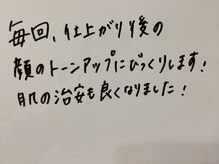 毎回、仕上がり後の
顔のトーンアップにびっくりします!
肌の治安も良くなりました!